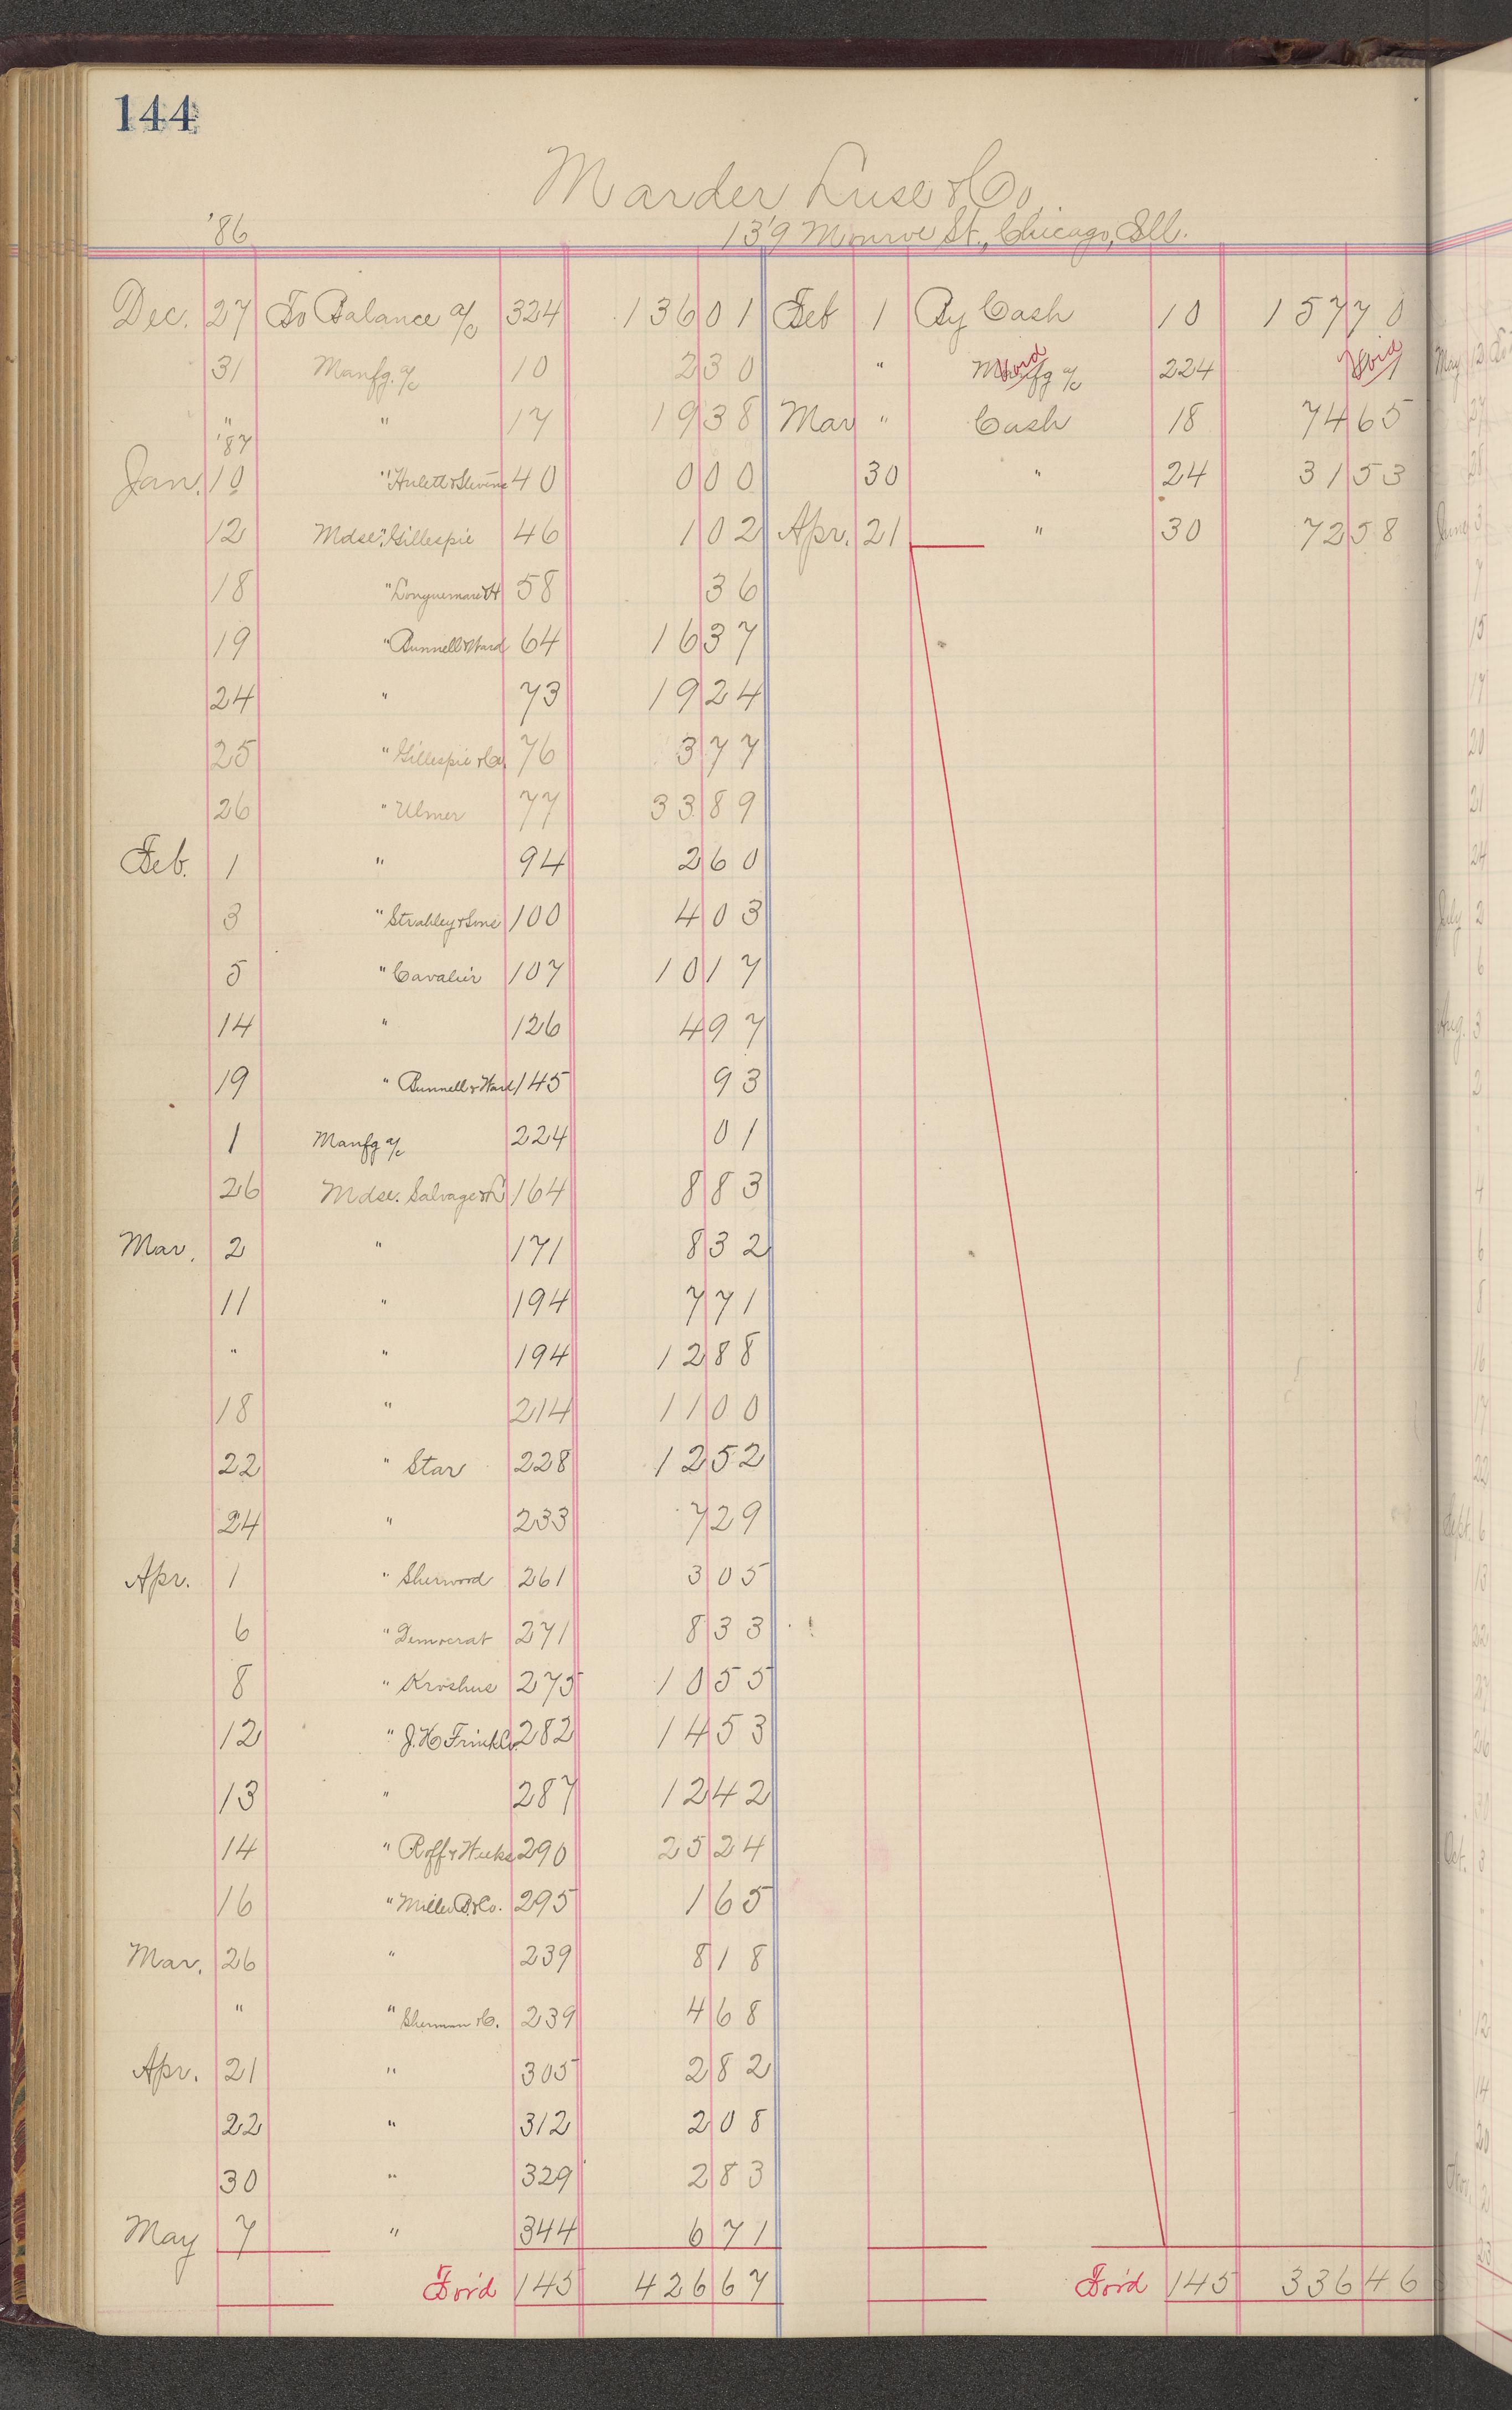 144
Marder Luse & Co.
'86 139 Monroe St., Chicago, Ill.
Dec. 27 To Balance a/c 324 136 01 Feb 1 By Cash 10 157 70
31 Manfg. a/c 10 2 30 " Manfg a/c Void 224 Void
" " 17 19 38 Mar " Cash 18 74 65
'87
Jan. 10 " Hulett & Stevens 40 0 00 30 " 24 31 53
12 Mdse. " Gillespie 46 1 02 Apr. 21 " 30 72 58
18 " Longuemare & H 58 36
19 " Bunnell & Ward 64 16 37
24 " 73 19 24
25 " Gillespie & Co. 76 3 77
26 " Ulmer 77 33 89
Feb. 1 " 94 2 60
3 " Strahley & Sons 100 4 03
5 " Cavalier 107 10 17
14 " 126 4 97
19 " Bunnell & Ward 145 93
1 Manfg a/c 224 01
26 Mdse. Salvage & L 164 8 83
Mar. 2 " 171 8 32
11 " 194 7 71
" " 194 12 88
18 " 214 11 00
22 " Star 228 12 52
24 " 233 7 29
Apr. 1 " Sherwood 261 3 05
6 " Democrat 271 8 33
8 " Kroshus 275 10 55
12 " J. H. Frink Co. 282 14 53
13 " 287 12 42
14 " Roff & Weeks 290 25 24
16 " Miller B. & Co. 295 1 65
Mar. 26 " 239 8 18
" " Sherman & Co. 239 4 68
Apr. 21 " 305 2 82
22 " 312 2 08
30 " 329 2 83
May 7 " 344 6 71
For'd 145 426 67 For'd 145 336 46